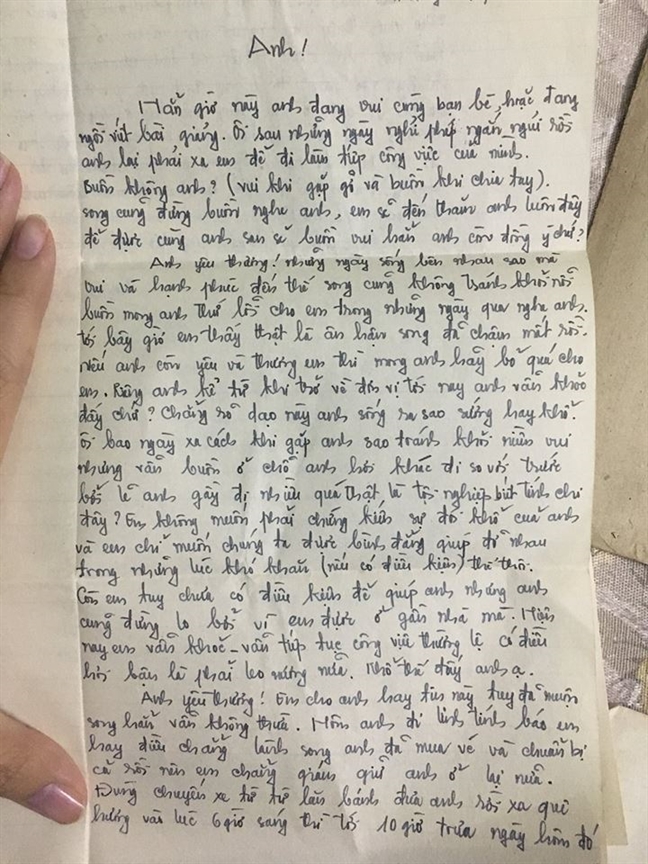 Anh!
Hẳn giờ này anh đang vui cùng bạn bè, hoặc đang
ngồi viết bài giảng. Ôi sau những ngày nghỉ phép ngắn ngủi rồi
anh lại phải xa em để đi làm tiếp công việc của mình.
Buồn không anh? (vui khi gặp gỡ và buồn khi chia tay).
song cũng đừng buồn nghe anh, em sẽ đến thăm anh luôn đấy
để được cùng anh san sẻ buồn vui hẳn anh còn đồng ý chứ?
Anh yêu thương! những ngày sống bên nhau sao mà
vui và hạnh phúc đến thế song cũng không tránh khỏi nỗi
buồn mong anh thứ lỗi cho em trong những ngày qua nghe anh.
tới bây giờ em thấy thật là ân hận song đã chậm mất rồi.
nếu anh còn yêu và thương em thì mong anh hãy bỏ quá cho
em. Riêng anh kể từ khi trở về đơn vị tới nay anh vẫn khỏe
đấy chứ? Chẳng rõ dạo này anh sống ra sao sướng hay khổ.
Ôi bao ngày xa cách khi gặp anh sao tránh khỏi niềm vui
nhưng vẫn buồn ở chỗ anh hơi khác đi so với trước
bởi lẽ anh gầy đi nhiều quá thật là tội nghiệp bút tính chi
đây? Em không muốn phải chứng kiến sự đói khổ của anh
và em chỉ muốn chúng ta được bình đẳng giúp đỡ nhau
trong những lúc khó khăn (nếu có điều kiện) thế thôi.
Còn em tuy chưa có điều kiện để giúp anh nhưng anh
cũng đừng lo bởi vì em được ở gần nhà mà. Hiện
nay em vẫn khỏe - vẫn tiếp tục công việc thường lệ có điều
hơi bận là phải leo nương nữa. Khổ thế đấy anh ạ.
Anh yêu thương! Em cho anh hay tin này tuy đã muộn
song hẳn vẫn không thừa. Hôm anh đi linh tính báo em
hay điều chẳng lành song anh đã mua vé và chuẩn bị
cả rồi nên em chẳng giám giữ anh ở lại nữa.
Đúng chuyến xe từ từ lăn bánh đưa anh rời xa quê
hương vào lúc 6 giờ sáng thì tới 10 giờ trưa ngày hôm đó